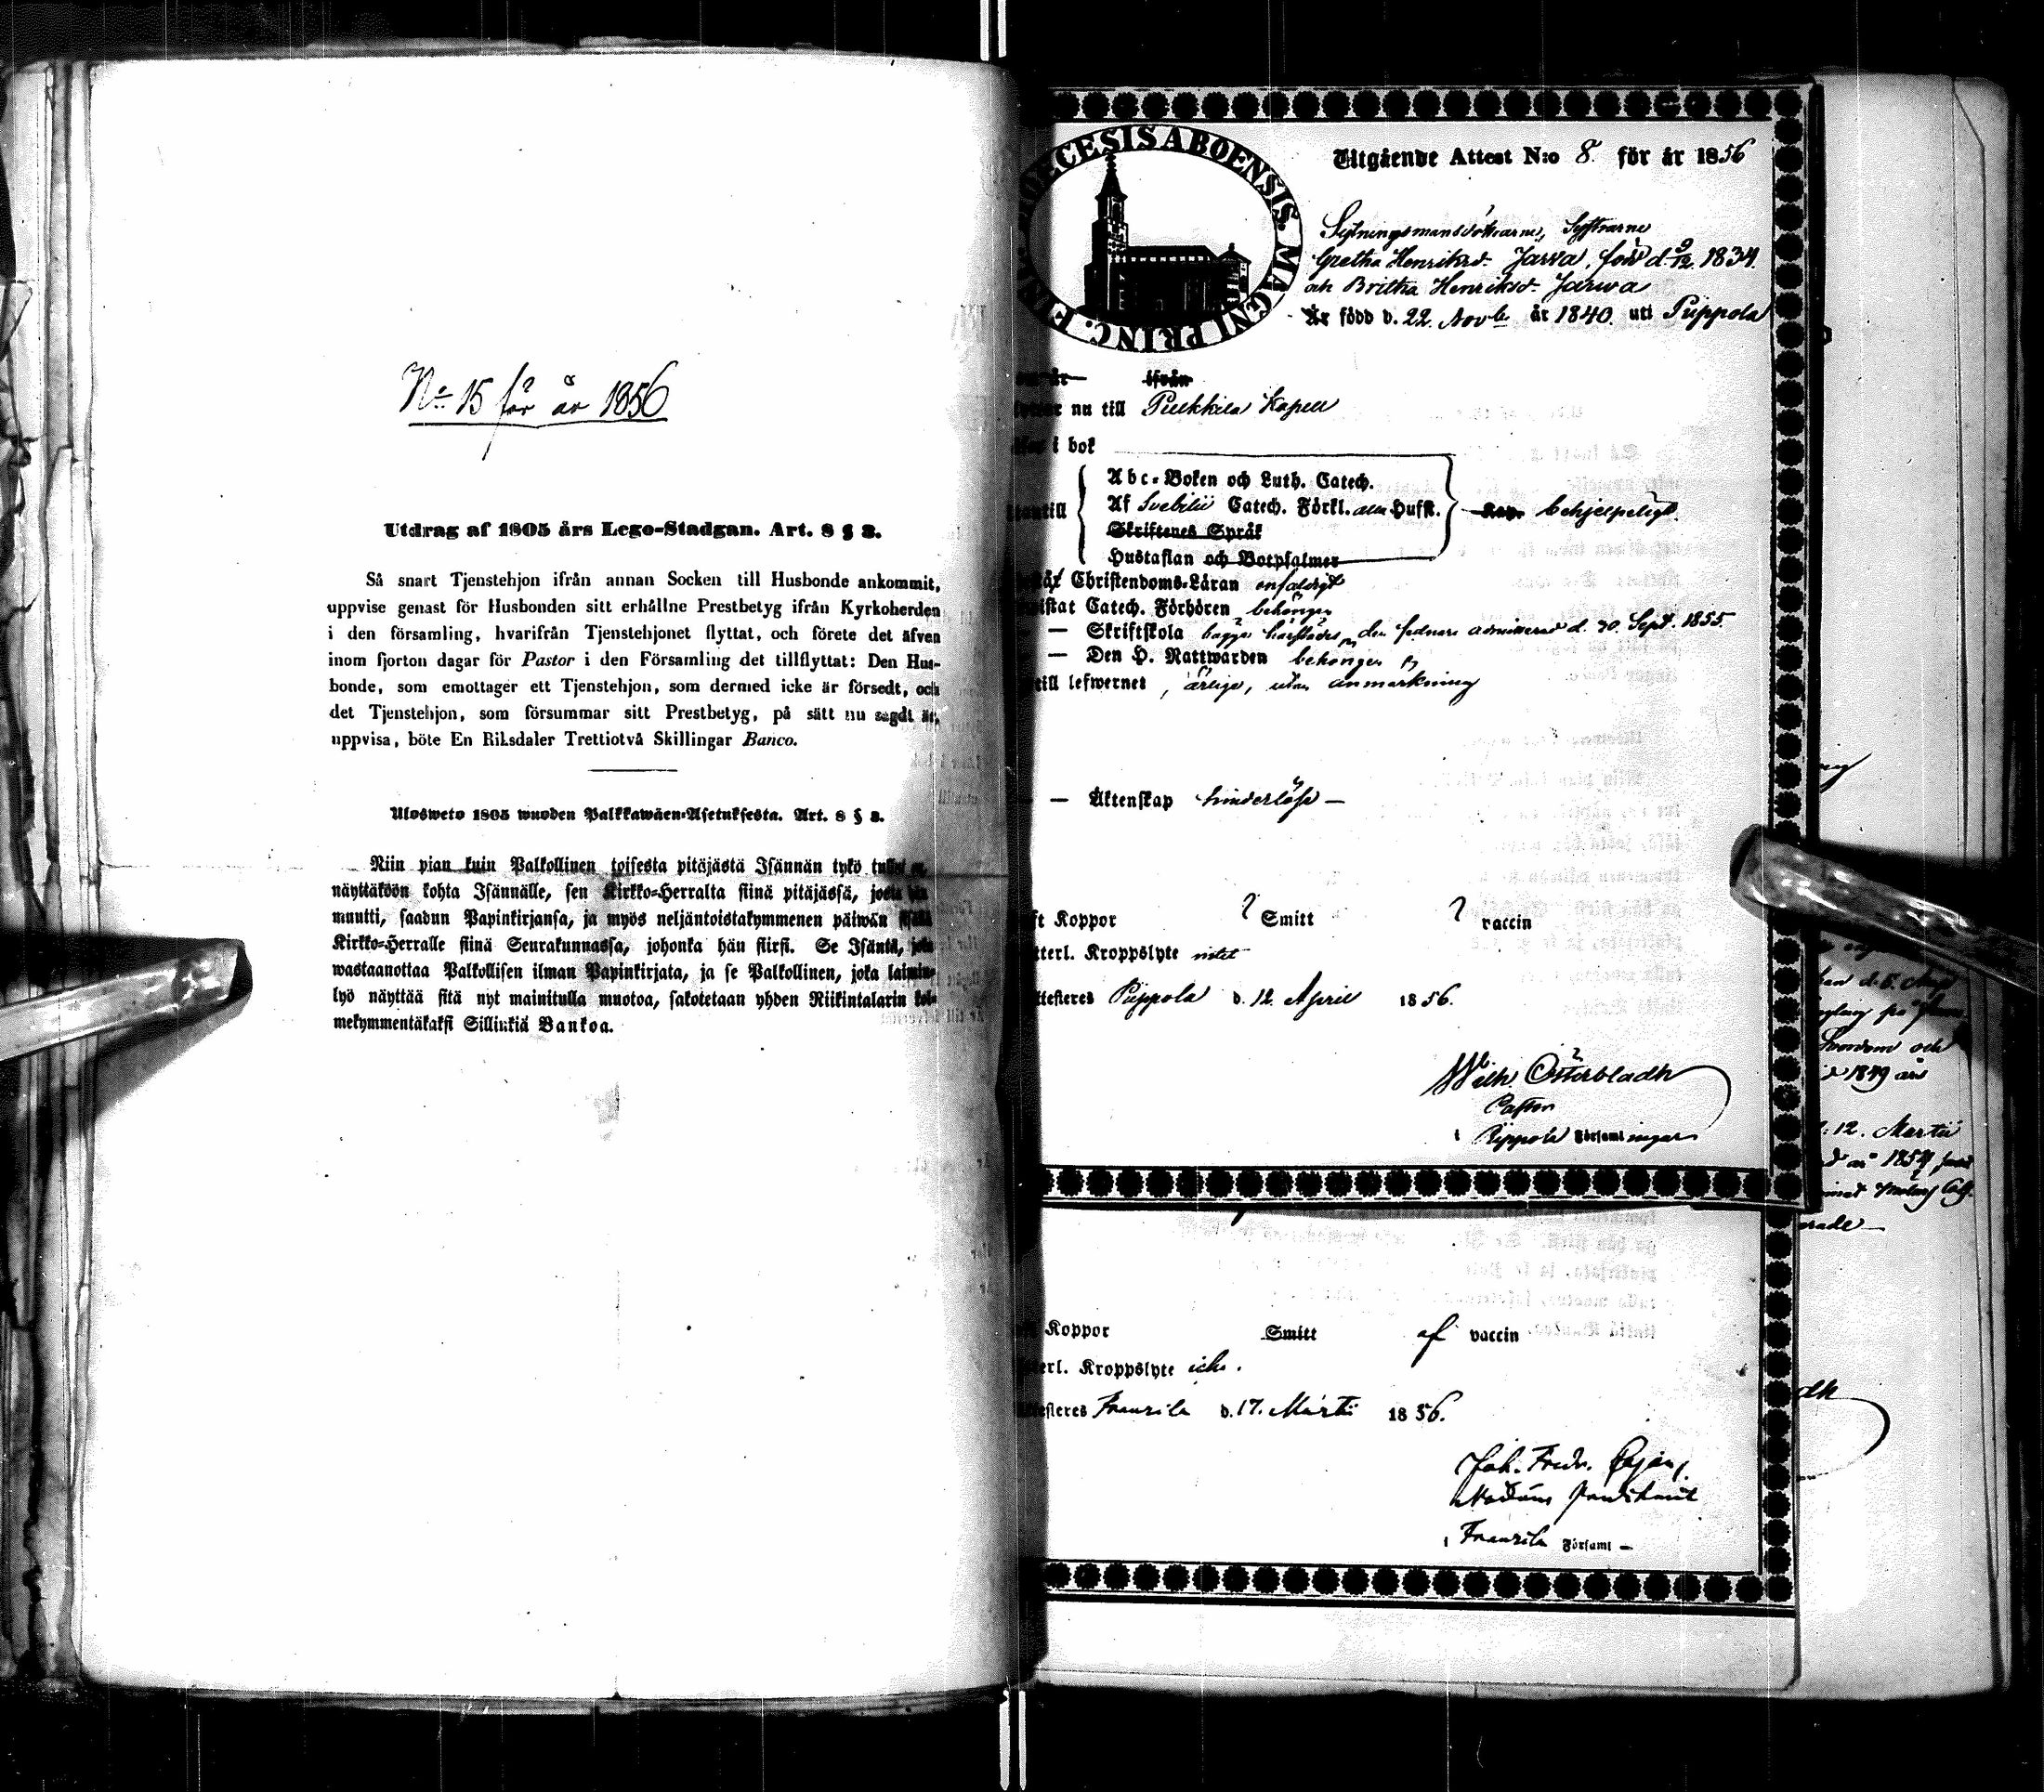 No 15 för år 1856
Utdrag af 1805 års Lego-Stadgan. Art. 8 § 3.
Så snart Tjenstehjon ifrån annan Socken till Husbonde ankommit,
uppvise genast för Husbonden sitt erhållne Prestbetyg ifrån Kyrkoherden
i den församling, hvarifrån Tjenstehjonet flyttat, och förete det äfven
inom fjorton dagar för Pastor i den Församling det tillflyttat: Den Hus-
bonde, som emottager ett Tjenstehjon, som dermed icke är försedt, och
det Tjenstehjon, som försummar sitt Prestbetyg, på sätt nu sagdt är,
uppvisa, böte En Riksdaler Trettiotvå Skillingar Banco.
Ulosweto 1805 wuoden Palkkawäen-Asetuksesta. Art. 8 § 3.
Niin pian kuin Palkollinen toisesta pitäjästä Isännän tykö
näyttäköön kohta Isännälle, sen Kirkko-Herralta siinä pitäjässä,
muutti, saadun Papinkirjansa, ja myös neljäntoistakymmenen päiwän
Kirkko-Herralle siinä Seurakunnassa, johonka hän siirsi. Se Isäntä,
wastaanottaa Palkollisen ilman Papinkirjata, ja se Palkollinen, joka laimin-
lyö näyttää sitä nyt mainitulla muotoa, sakotetaan yhden Riikintalarin kol-
mekymmentäkaksi Sillinkiä Bankoa.
DIOECESIS ABOENSIS. MAGNI PRINC.
Utgående Attest N:o 8. för år 1856
Sytningsmansdöttrarne, Systrarne
Gretha Henriksd. Jarva, född d. 9/12 1834.
och Britha Henriksd. Jarva
Är född d. 22. Novbr år 1840. uti Piippola
ifrån
nu till Pulkkila Kapell
i bok
Abc-Boken och Luth. Catech.
Af Svebilii Catech. Förkl. Husf.
Skriftenes Språk
Hustaflan och Botpsalmer
behjelpeligt.
Christendoms-Läran enfaldigt
Catech. Förhören behörigen
— Skriftskola bägge härstädes, den sednare admitterad d. 30. Sept. 1855.
— Den H. Nattwarden behörigen
till lefwernet, ärlige, utan anmärkning
— Äktenskap hinderlöse —
Koppor ? Smitt ? vaccin
Kroppslyte intet
Piippola d. 12. April 1856.
Wilh. Österbladh
Pastor
i Piippola Församlingar
Koppor Smitt af vaccin
Kroppslyte icke.
Frantsila d. 17. Martii 1856.
Joh. Fredr.
i Frantsila Församl —
12. Martii